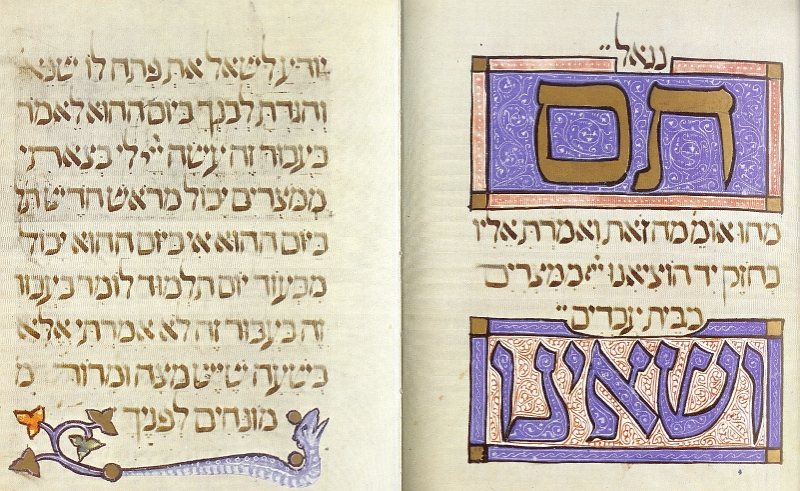 נגאל
תם
מהו אומ מה זאת ואמרת אליו
בחזק יד הוציאנו יי ממצרים
מבית עבדים
ושאינו
יודיע לשאל את פתח לו שנא
והגדת לבנך ביום ההוא לאמר
בעבור זה עשה ייי לי בצאתי
ממצרים יכול מראש חדש תל
ביום ההוא אי ביום ההוא יכול
מבעוד יום תלמוד לומר בעבור
זה בעבור זה לא אמרתי אלא
בשעה שיש מצה ומרור מ
מונחים לפניך